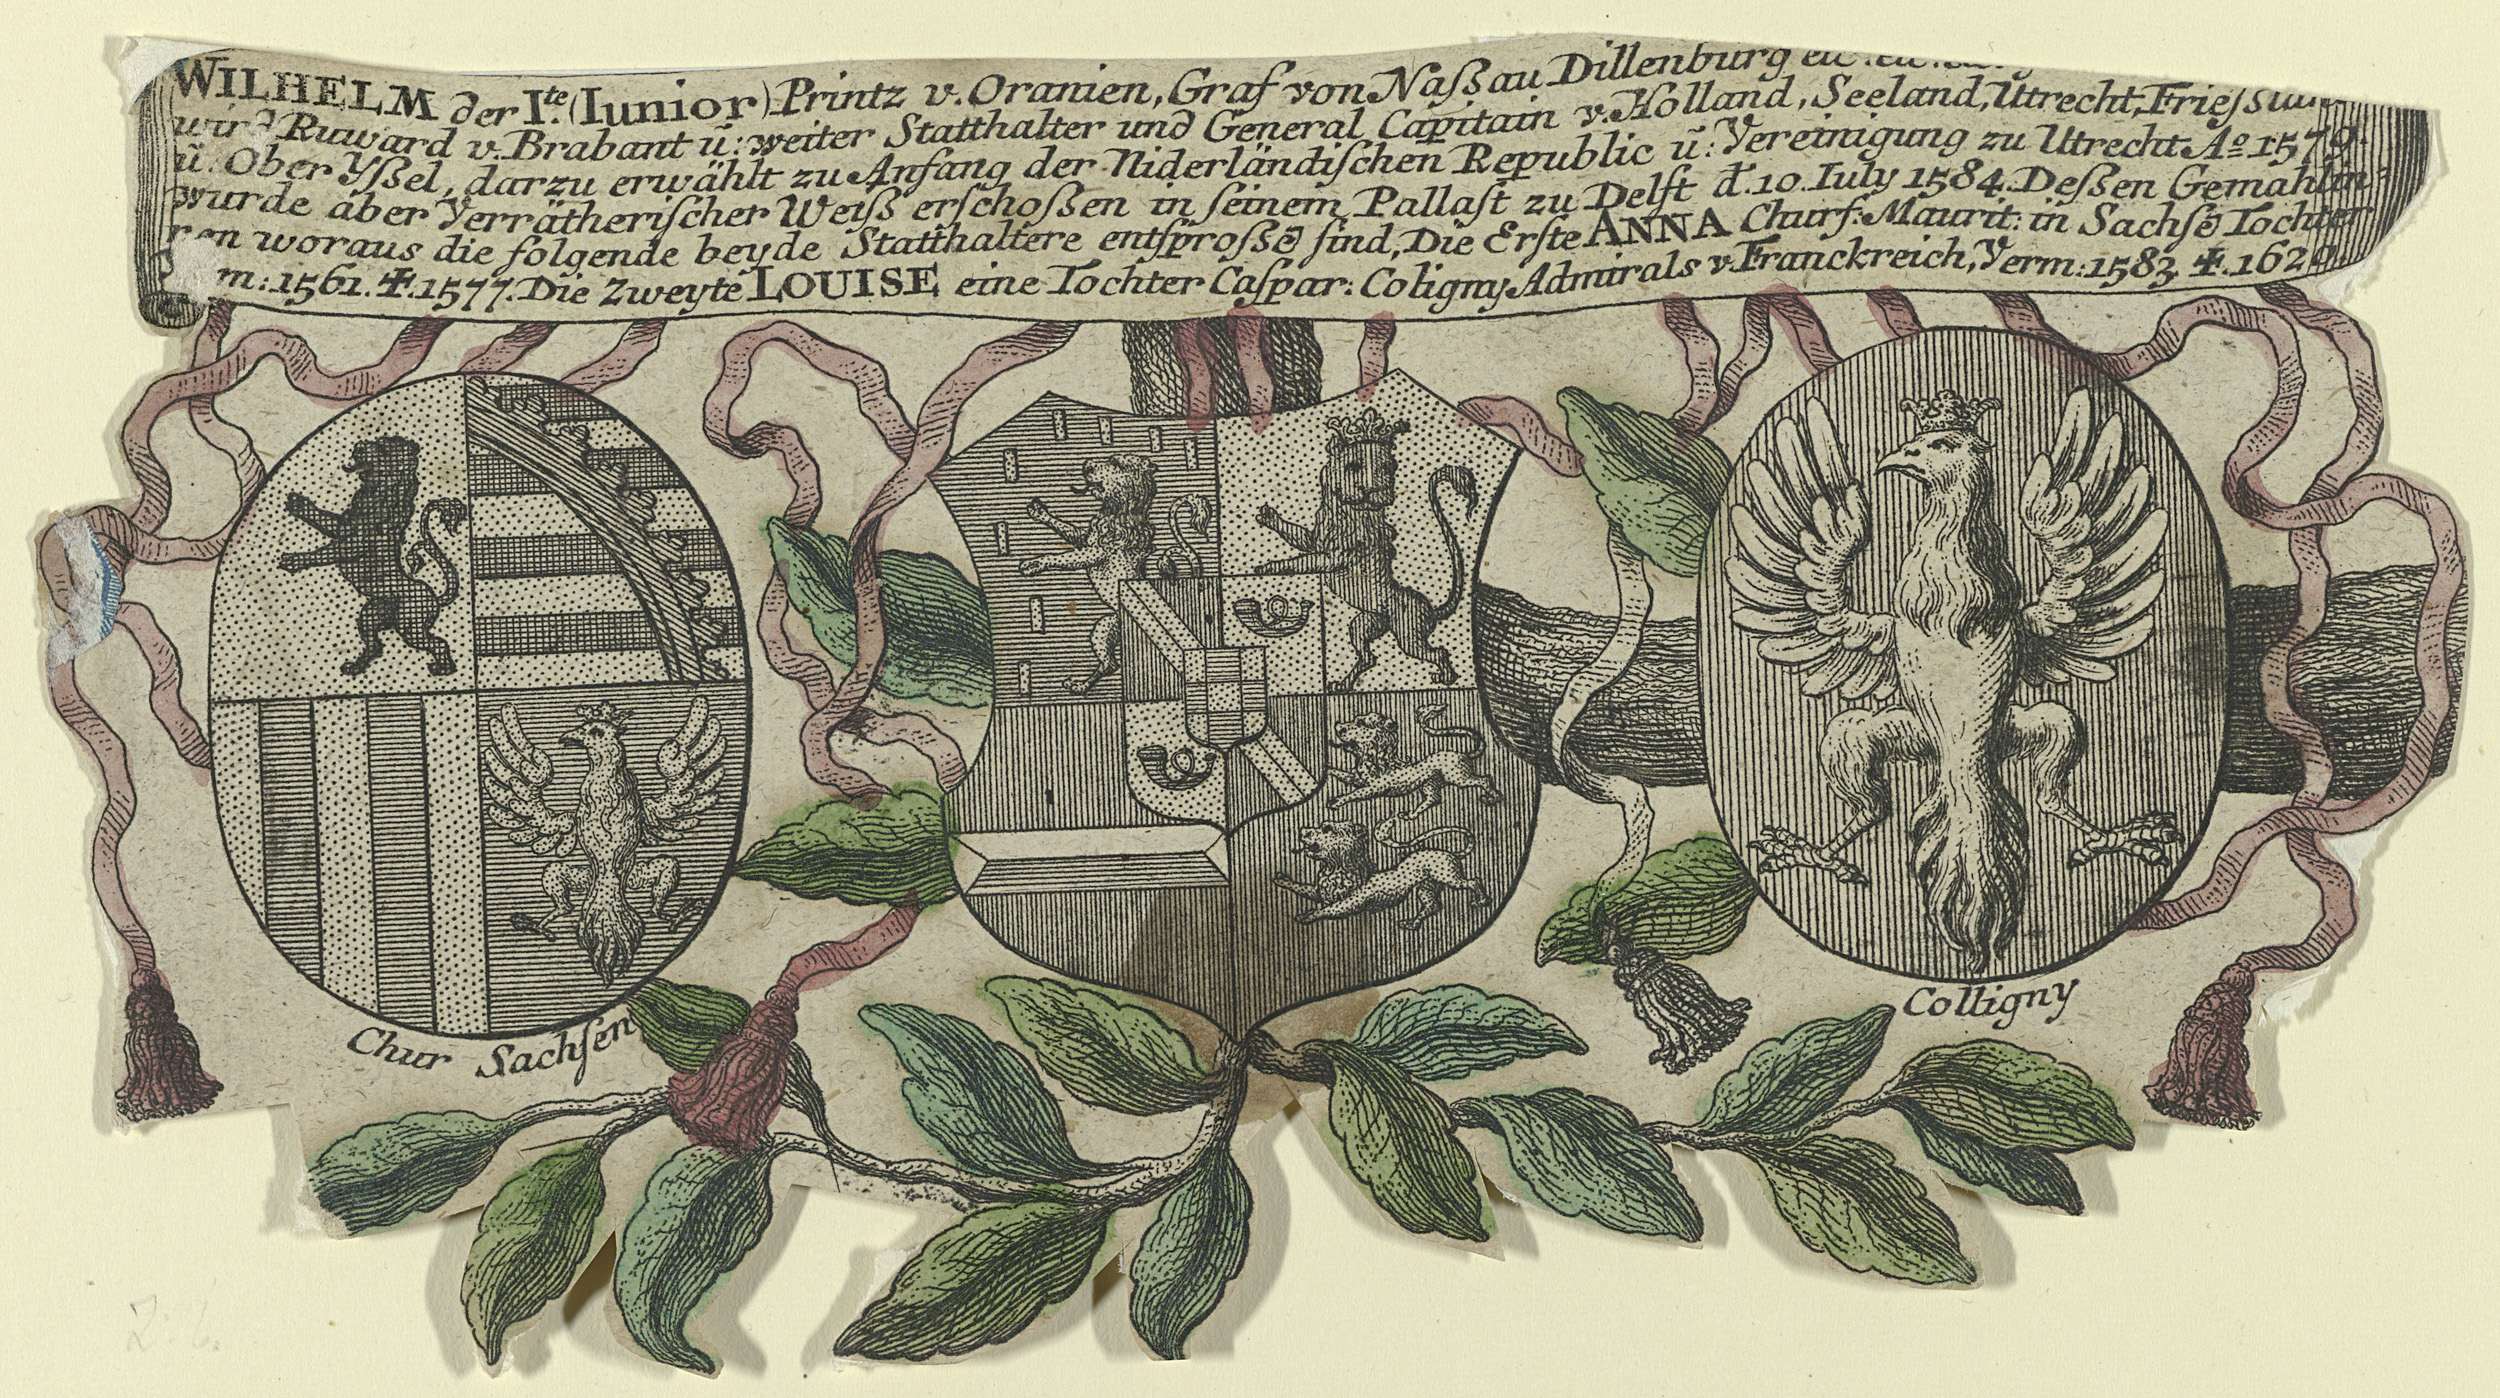 WILHELM der I.te (Iunior) Printz v. Oranien, Graf von Naßau Dillenburg etc. etc.
wird Ruward v. Brabant ū: weiter Statthalter und General Capitain v. Holland, Seeland, Utrecht, Frießland
ū. Ober Yßel, darzu erwählt zu Anfang der Niderländischen Republic ū: Vereinigung zu Utrecht Aº 1579.
wurde aber Verrätherischer Weiß erschoßen in seinem Pallast zu Delft d. 10. Iuly 1584. Deßen Gemahlin
woraus die folgende beyde Statthaltere entsproßē sind, Die Erste ANNA Churf: Maurit: in Sachsē Tochter
m: 1561. ✠. 1577. Die Zweyte LOUISE eine Tochter Caspar: Coligny Admirals v. Franckreich, Verm: 1583 ✠. 1620.
Chur Sachsen
Colligny